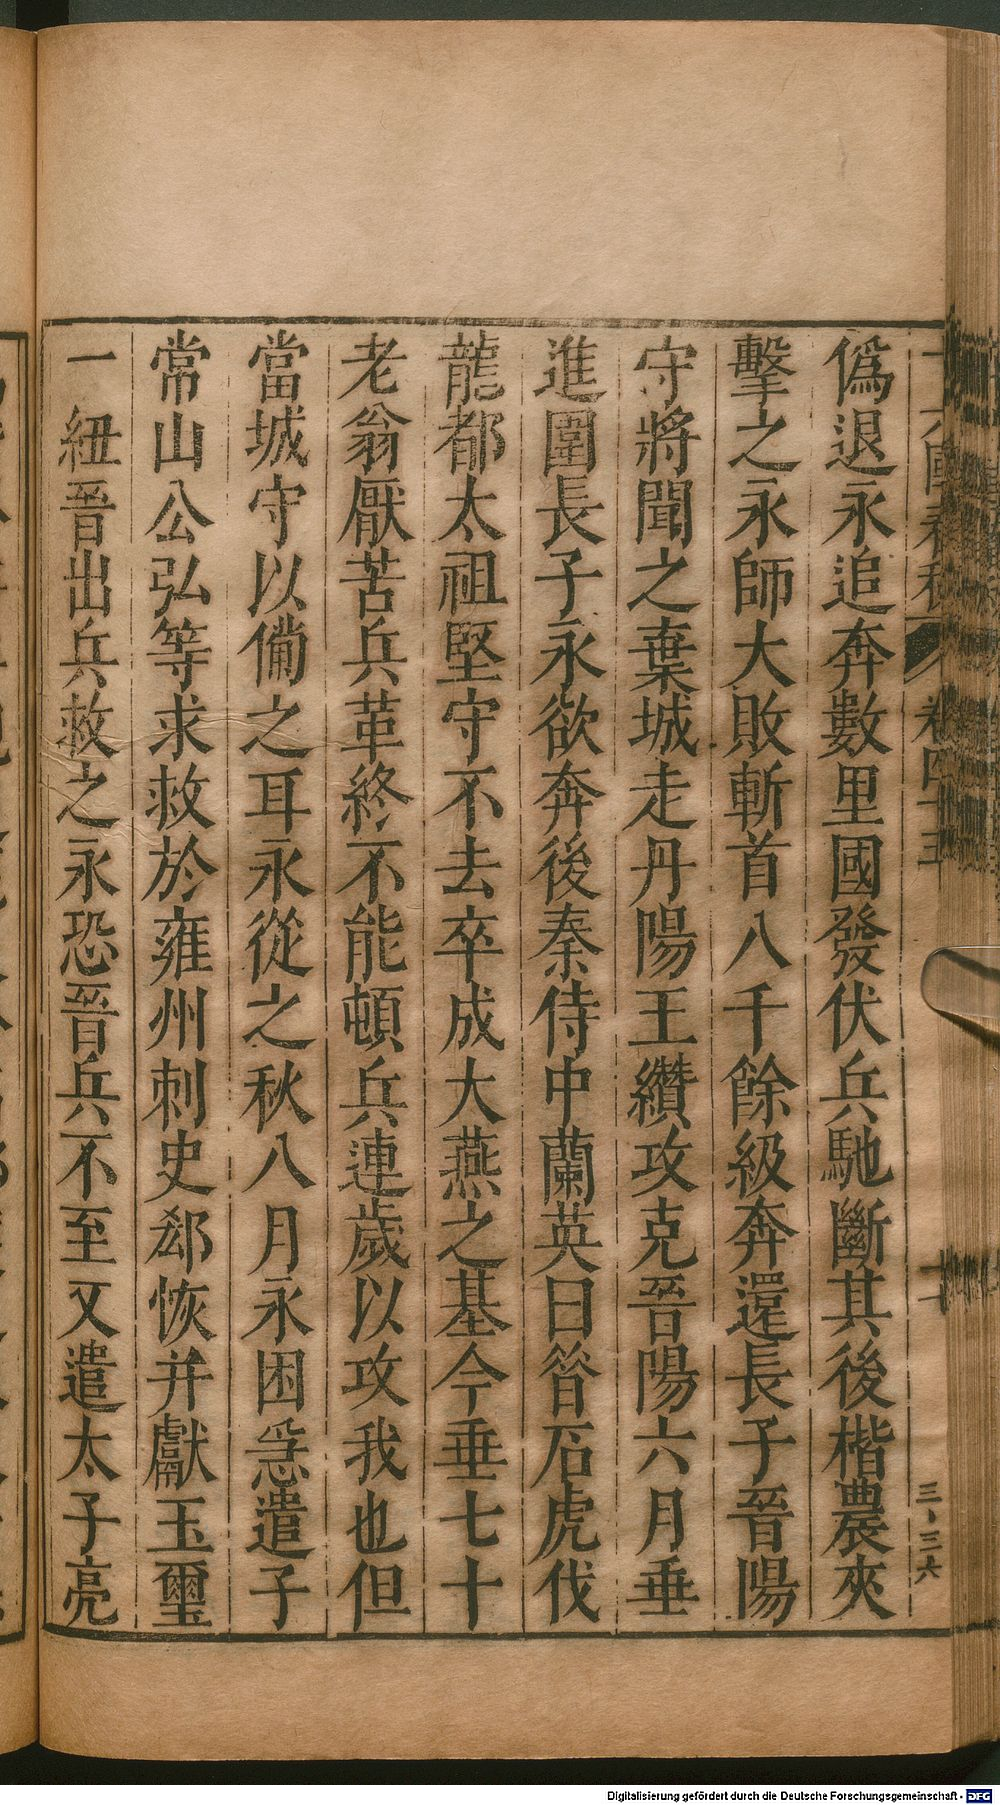 偽退永追奔數里國發伏兵馳斷其後楷農夾
擊之永師大敗斬首八千餘級奔還長子晉陽
守將聞之棄城走丹陽王纘攻克晉陽六月垂
進圍長子永欲奔後秦侍中蘭英曰昝石虎伐
龍都太祖堅守不去卒成大燕之基今垂七十
老翁厭苦兵革終不能頓兵連歲以攻我也但
當城守以備之耳永從之秋八月永困急遣子
常山公弘等求救於雍州刺史郄恢并獻玉璽
一紐晉出兵救之永恐晉兵不至又遣太子亮
卷四十五
三·三六
Digitalisierung gefördert durch die Deutsche Forschungsgemeinschaft - DFG